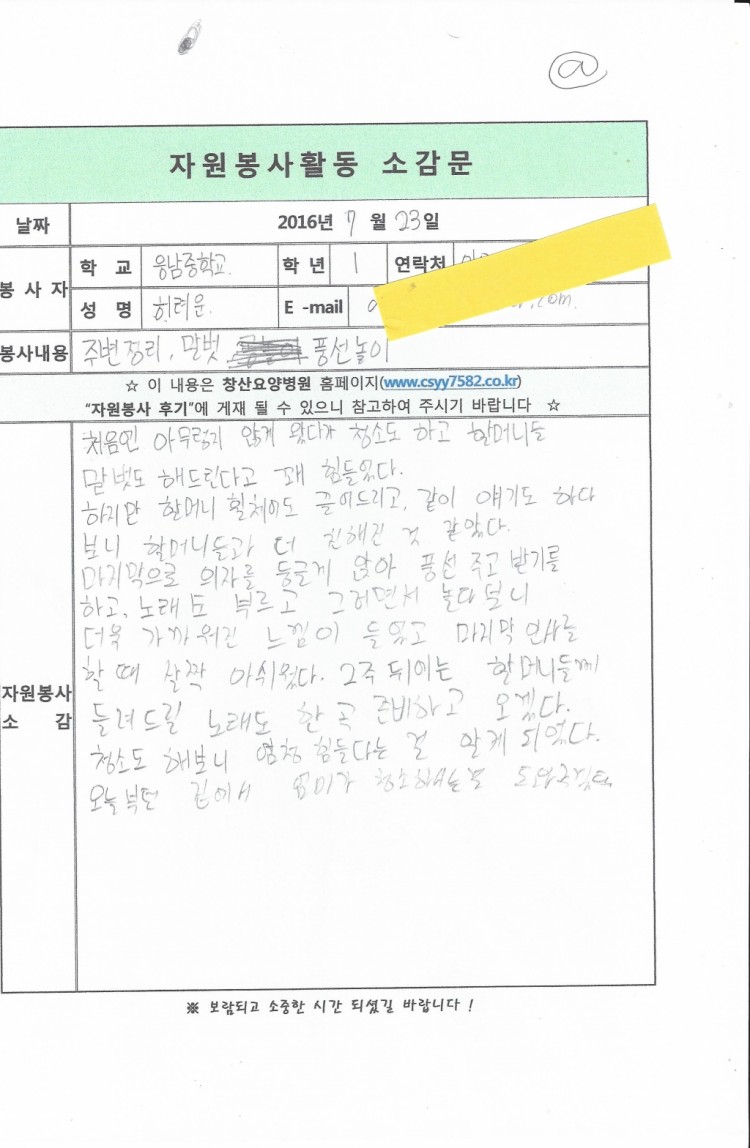 @
자원봉사활동 소감문
날짜 2016년 7 월 23일
봉 사 자
학 교 웅남중학교. 학 년 1 연락처
성 명 허려운. E -mail
봉사내용 주변정리, 말벗, 풍선놀이
☆ 이 내용은 창산요양병원 홈페이지(www.csyy7582.co.kr)
"자원봉사 후기"에 게재 될 수 있으니 참고하여 주시기 바랍니다 ☆
자원봉사
소 감
처음엔 아무렇지 않게 왔다가 청소도 하고 할머니들
말벗도 해드린다고 꽤 힘들었다.
하지만 할머니 휠체어도 끌어드리고, 같이 얘기도 하다
보니 할머니들과 더 친해진 것 같았다.
마지막으로 의자를 둥글게 앉아 풍선 주고 받기를
하고, 노래도 부르고 그러면서 놀다보니
더욱 가까워진 느낌이 들었고 마지막 인사를
할 때 살짝 아쉬웠다. 2주 뒤에는 할머니들께
들려드릴 노래도 한 곡 준비하고 오겠다.
청소도 해보니 엄청 힘들다는 걸 알게 되었다.
오늘부턴 집에서 엄마가 청소하는
※ 보람되고 소중한 시간 되셨길 바랍니다 !